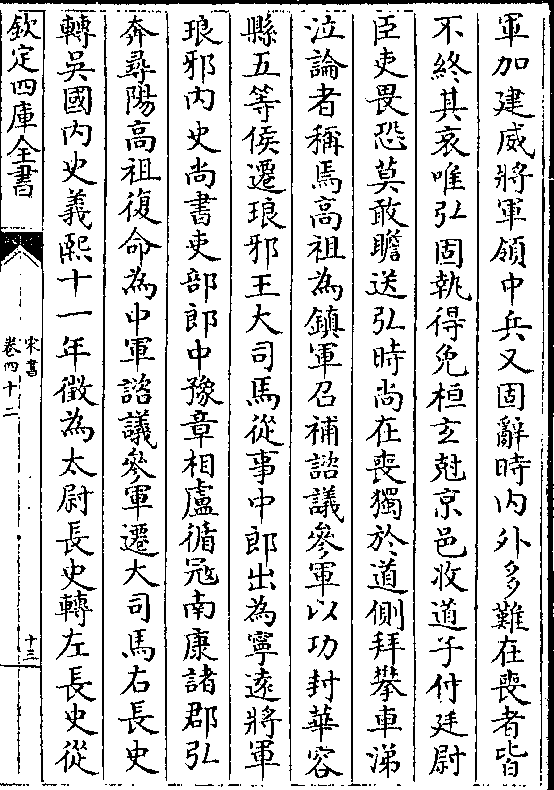 軍加建威將軍領中兵又固辭時內外多難在喪者皆
不終其哀唯弘固執得免桓玄尅京邑收道子付廷尉
臣吏畏恐莫敢瞻送弘時尚在喪獨於道側拜攀車涕
泣論者稱焉高祖為鎮軍召補諮議參軍以功封華容
縣五等侯遷琅邪王大司馬從事中郎出為寧遠將軍
琅邪內史尚書吏部郎中豫章相盧循冦南康諸郡弘
奔尋陽高祖復命為中軍諮議參軍遷大司馬右長史
轉吳國內史義熙十一年徵為太尉長史轉左長史從
欽定四庫全書
宋書
卷四十二
十三